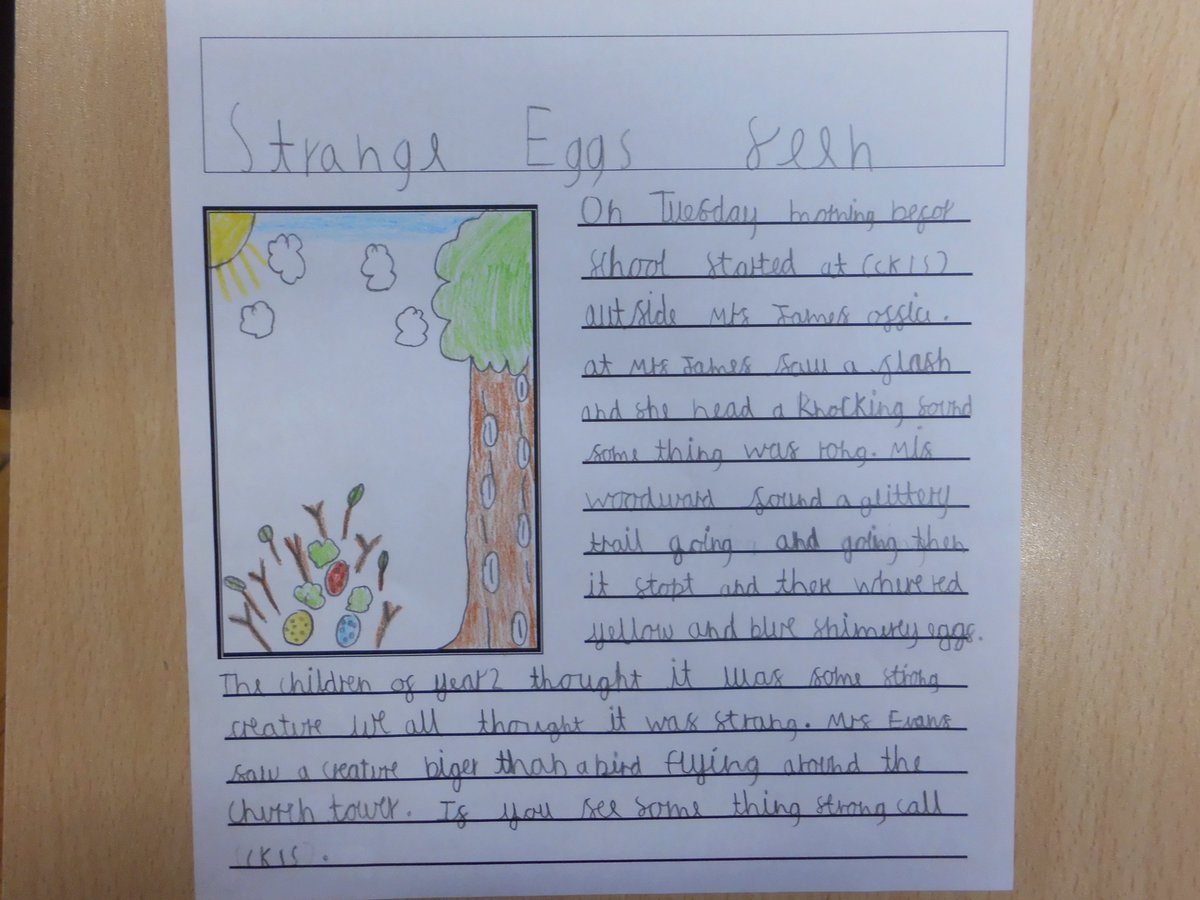 Strange Eggs seen
On Tuesday morning befor
school started at (CKIS)
outside Mrs James office.
at Mrs James saw a flash
and she head a knocking sound
some thing was rong. Mis
woodward found a glittery
trail going and going then
it stopt and ther where red
yellow and blue shimery eggs.
The children of year 2 thought it was some strong
creature we all thought it was strang. Mrs Evans
saw a creature biger than a bird flying around the
church tower. If you see some thing strong call
CKIS.